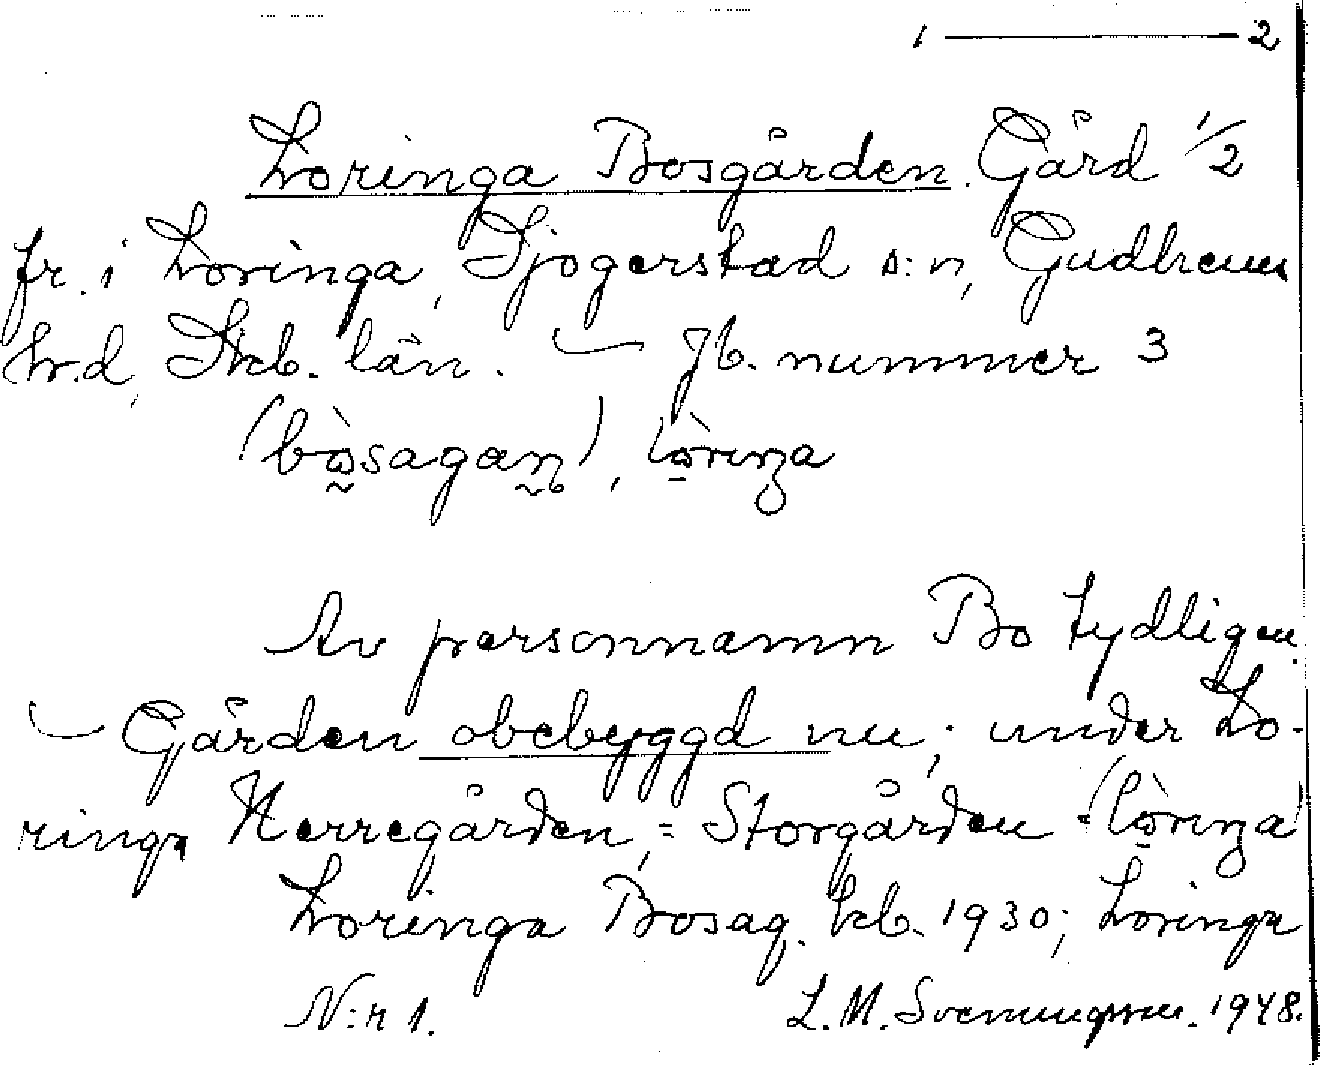 1 — 2
Loringa Bosgården. Gård 1/2
fr. i Loringa, Sjogerstad s:n, Gudhems
hrd, Skb. län. — Jb. nummer 3
(bòsagaṉ), lòriŋa
Av personnamn Bo tydligen.
— Gården obebyggd nu; under Lo-
ringa Herregården, = Storgården (lòriŋa)
Loringa Bosag. kb. 1930; Loringa
N:r 1. L. M. Svenungsson. 1948.